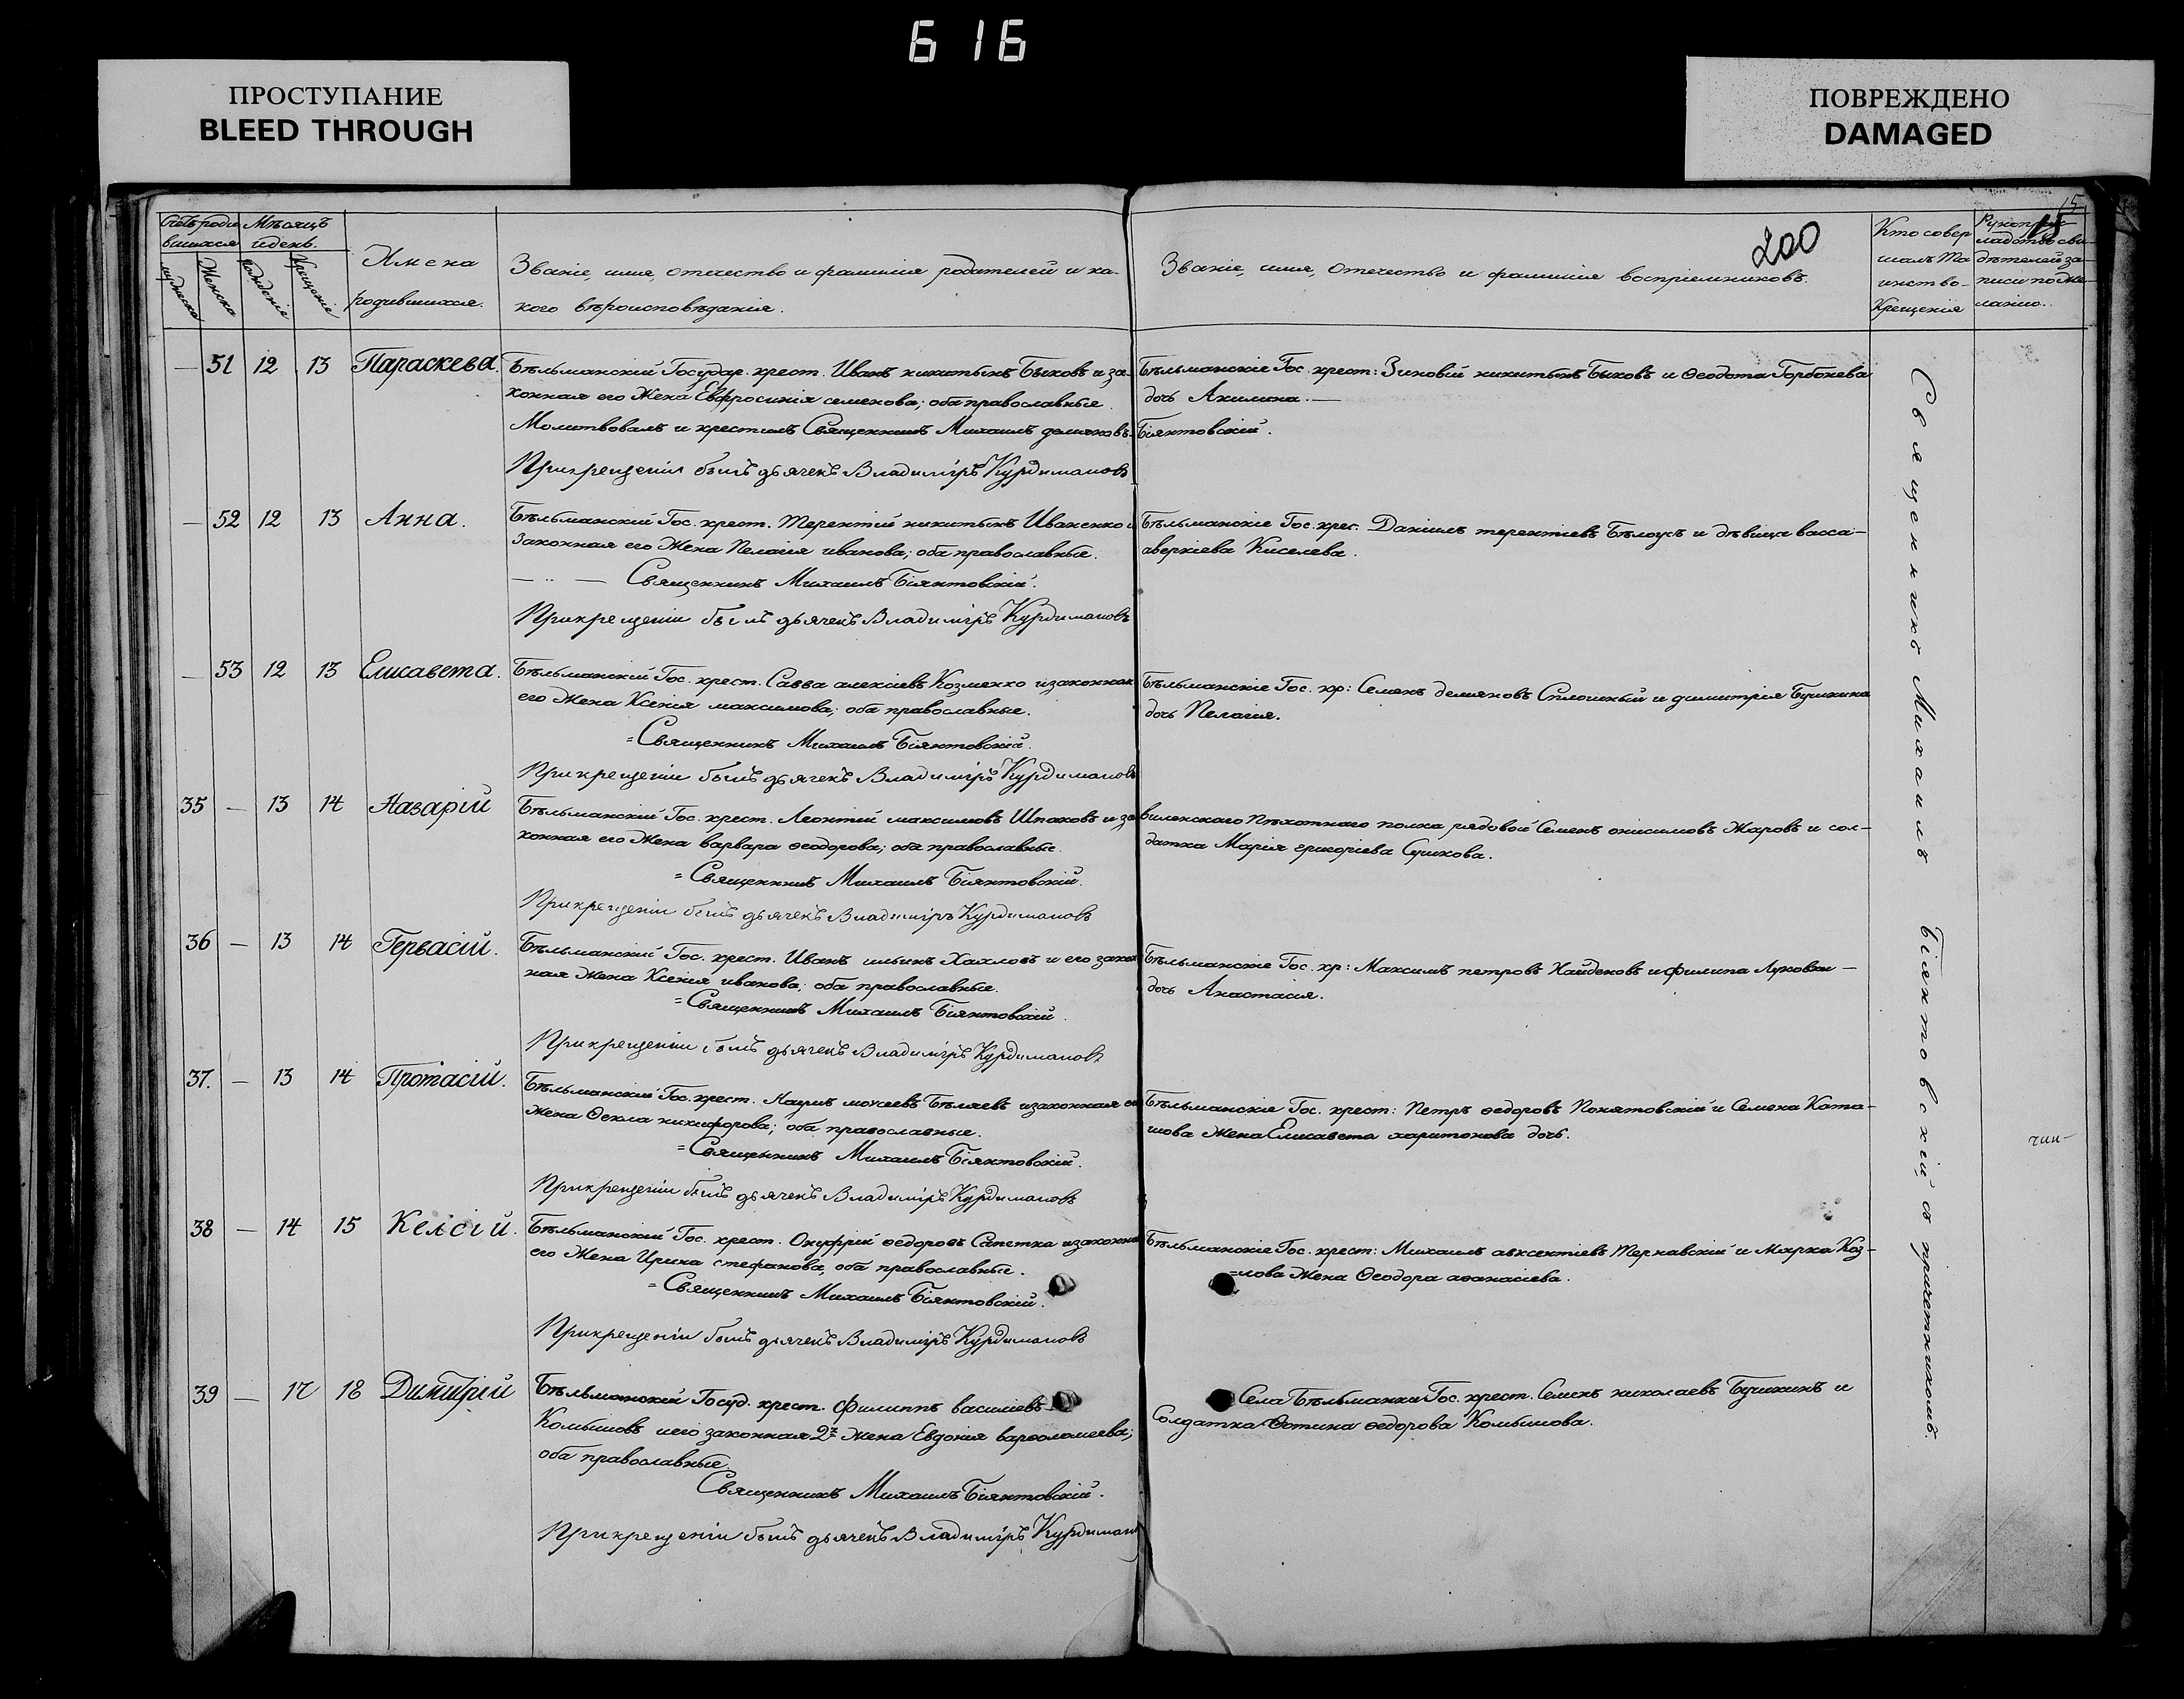 616
ПРОСТУПАНИЕ
BLEED THROUGH
ПОВРЕЖДЕНО
DAMAGED
15
200
Счетъ роди Мѣсяцъ
вшихся и день.
мужеска Женска рожденіе Крещеніе
Имена
родившихся.
Званіе, имя, отчество и фамилія родителей и ка-
кого вѣроисповѣданія.
Званіе, имя, отечество и фамилія воспріемниковъ.
Кто совер
шалъ Та
инство
Крещенія
Рукопри-
кладство сви-
дѣтелей за-
писи по Же-
ланію.
— 51 12 13 Параскева. Бѣльманскій Государ. крест. Иванъ никитинъ Быковъ и за-
конная его Жена Евфросинія семенова; оба православные.
Молитвовалъ и крестилъ Священникъ Михаилъ демяновъ Біянтовскій.
При крещеніи былъ дьячекъ Владиміръ Курдимановъ
Бѣльманскіе Гос. крест: Зиновій никитинъ Быковъ и Ѳеодота Горбонева
дочь Акилина. —
— 52 12 13 Анна. Бѣльманскій Гос. крест. Терентій никитинъ Иваненко и
Законная его Жена Пелагія иванова; оба православные.
— „ — Священникъ Михаилъ Біянтовскій.
При крещеніи былъ дьячекъ Владиміръ Курдимановъ
Бѣльманскіе Гос. крес. Даніилъ терентіевъ Бѣлоусъ и дѣвица васса-
аверкіева Киселева.
— 53 12 13 Елисавета. Бѣльманскій Гос. крест. Савва алексіевъ Козменко и законная
его Жена Ксенія максимова; оба православные.
= Священникъ Михаилъ Біянтовскій.
При крещеніи былъ дьячекъ Владиміръ Курдимановъ
Бѣльманскіе Гос. кр: Семенъ демяновъ Сплошный и димитрія Бушкина
дочь Пелагія.
35 — 13 14 Назарій Бѣльманскій Гос. крест. Леонтій максимовъ Шпаковъ и за
конная его Жена варвара ѳеодорова; оба православные.
= Священникъ Михаилъ Біянтовскій.
При крещеніи былъ дьячекъ Владиміръ Курдимановъ
виленскаго Пѣхотнаго полка рядовой Семенъ онисимовъ Жаровъ и сол-
датка Марія григоріева Сушкова.
36 — 13 14 Гервасій. Бѣльманскій Гос. крест. Иванъ ильинъ Хахловъ и его закон
ная Жена Ксенія иванова; оба православные.
= Священникъ Михаилъ Біянтовскій.
При крещеніи былъ дьячекъ Владиміръ Курдимановъ
Бѣльманскіе Гос. кр: Максимъ петровъ Найденовъ и филипа —
дочь Анастасія.
37. — 13 14 Протасій. Бѣльманскій Гос. крест. Наумъ моисеевъ Бѣляевъ и законная его
Жена Ѳекла никифорова; оба православные.
= Священникъ Михаилъ Біянтовскій.
При крещеніи былъ дьячекъ Владиміръ Курдимановъ
Бѣльманскіе Гос. крест: Петръ ѳедоровъ Понятовскій и Семена Ката-
шова Жена Елисавета харитонова дочь.
38 — 14 15 Келсій. Бѣльманскій Гос. крест. Онуфрій ѳедоровъ Сапетка и законная
его Жена Ирина стефанова, оба православные.
= Священникъ Михаилъ Біянтовскій.
При крещеніи былъ дьячекъ Владиміръ Курдимановъ
Бѣльманскіе Гос. крест: Михаилъ авксентіевъ Тернавскій и Марка Коз-
=лова Жена Ѳеодора аѳанасіева.
39 — 17 18 Димитрій Бѣльманскій Госуд. крест. филиппъ василіевъ
Комышовъ и его законная 2я Жена Евдокія варѳоломеева;
оба православные.
Священникъ Михаилъ Біянтовскій.
При крещеніи былъ дьячекъ Владиміръ Курдимановъ
Села Бѣльманки Гос. крест. Семенъ николаевъ Бушкинъ и
Солдатка Ѳотина ѳедорова Комышова.
Священникъ Михаилъ Біянтовскій, съ причетникомъ.